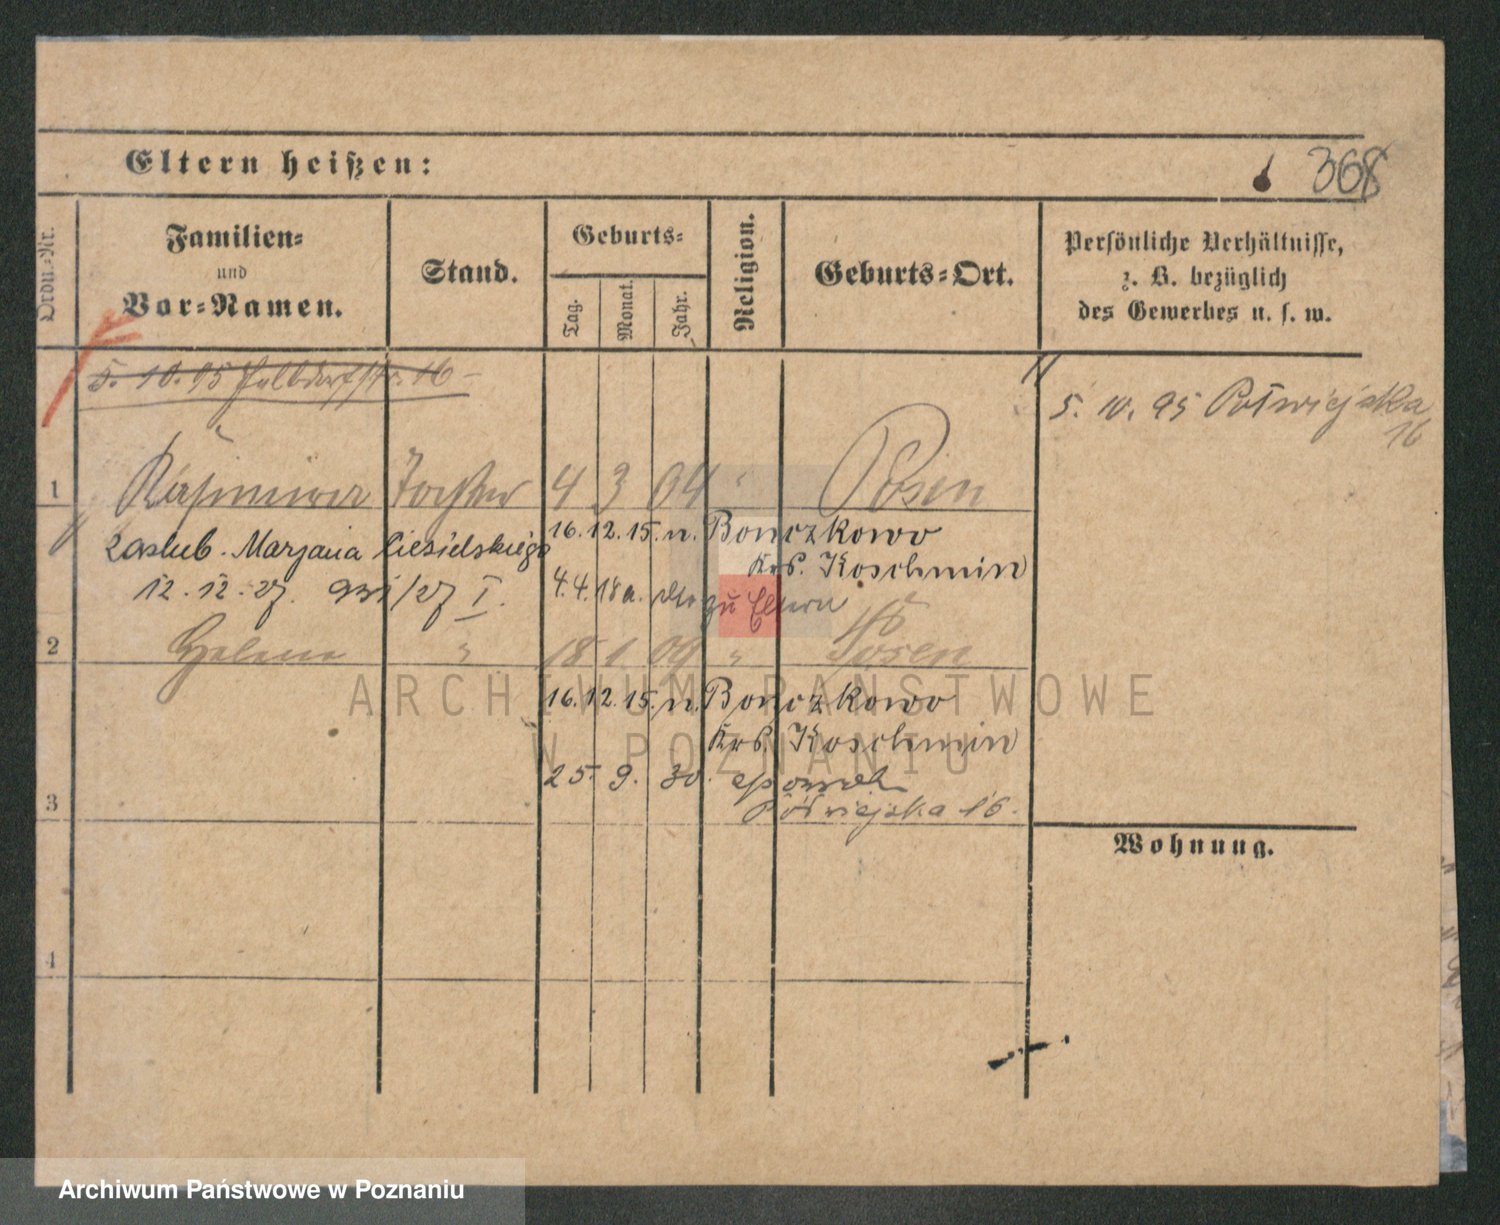 Eltern heißen:
368
Ordn.-Nr.
Familien-
und
Vor-Namen.
Stand.
Geburts-
Tag.
Monat.
Jahr.
Religion.
Geburts-Ort.
Persönliche Verhältnisse,
z. B. bezüglich
des Gewerbes u. s. w.
5. 10. 95 Halbdorfstr. 16
5. 10. 95 Półwiejska
16
1 Kasimira Tochter 4 3 04 " Posen
zaślub. Marjana Ciesielskiego 16. 12. 15. n. Bonczkowo
Krs. Koschmin
12. 12. 27. 931/27 I. 4. 4. 18 a. zu Eltern
2 Helene " 18 1 09 " Posen
16. 12. 15. n. Bonczkowo
Krs. Koschmin
25. 9. 30.
Półwiejska 16.
3
Wohnung.
4
ARCHIWUM PAŃSTWOWE
W POZNANIU
Archiwum Państwowe w Poznaniu